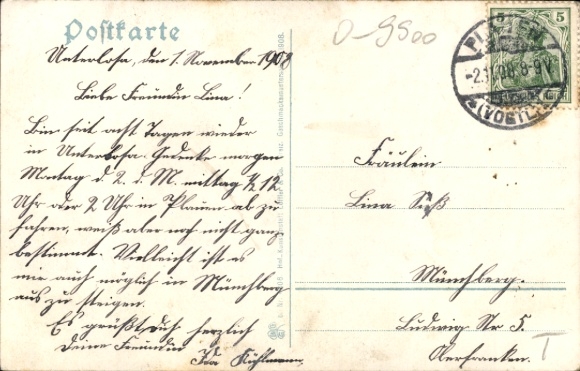 Postkarte
Unterlosa, den 1. November 1908
Liebe Freundin Lina!
Bin seit acht Tagen wieder
in Unterlosa. Gedenke morgen
Montag d. 2. d. M. mittag ½ 12
Uhr oder 2 Uhr in Plauen ab zu
fahren, weiß aber noch nicht ganz
bestimmt. Vielleicht ist es
mir auch möglich in Münchberg
aus zu steigen.
Es grüßt dich herzlich
Deine Freundin
Ida Kühlmann
0-9500
5
PLAUEN
-2.11.08.8-9V.
*(VOGTL.)
Fräulein
Lina Süß
Münchberg.
Ludwig Str 5.
Oberfranken.
T